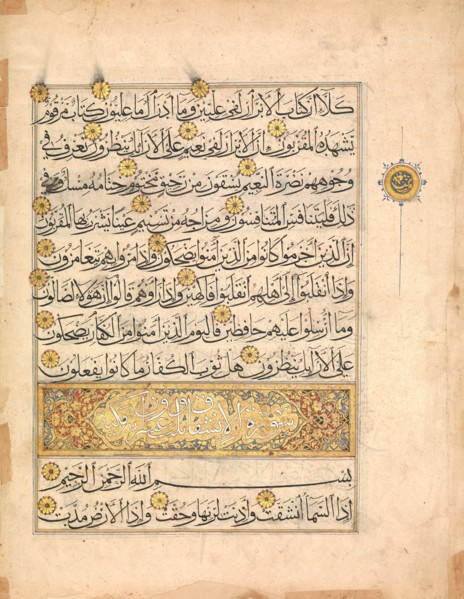 كلا ان كتاب الابرار لفي عليين وما ادراك ما عليون كتاب مرقوم
يشهده المقربون ان الابرار لفي نعيم على الارائك ينظرون تعرف في
وجوههم نضرة النعيم يسقون من رحيق مختوم ختامه مسك وفي
ذلك فليتنافس المتنافسون ومزاجه من تسنيم عينا يشرب بها المقربون
ان الذين اجرموا كانوا من الذين امنوا يضحكون واذا مروا بهم يتغامزون
واذا انقلبوا الى اهلهم انقلبوا فاكهين واذا راوهم قالوا ان هولا لضالون
وما ارسلوا عليهم حافظين فاليوم الذين امنوا من الكفار يضحكون
على الارائك ينظرون هل ثوب الكفار ما كانوا يفعلون
سورة الانشقاق
بسم الله الرحمن الرحيم
اذا السماء انشقت واذنت لربها وحقت واذا الارض مدت